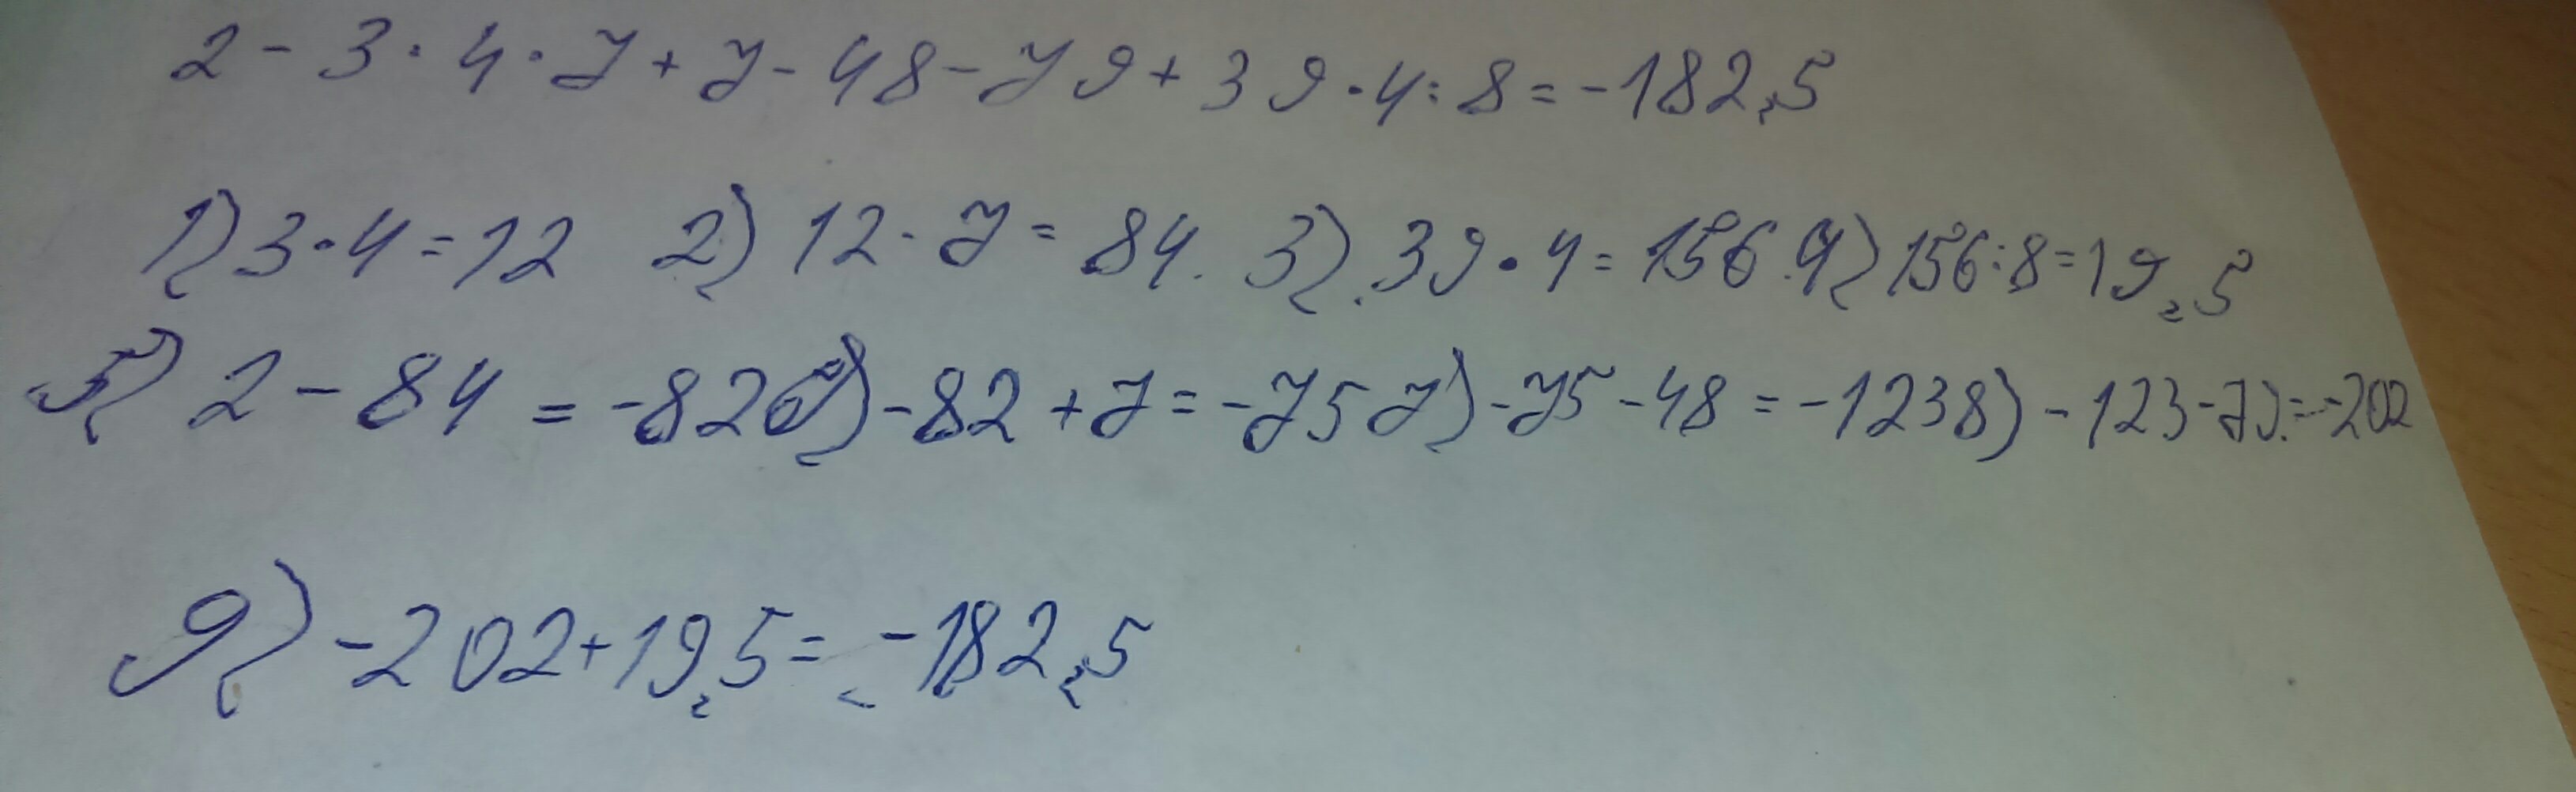 2 - 3 · 4 · 7 + 7 - 48 - 79 + 39 · 4 : 8 = -182,5
1) 3 · 4 = 12 2) 12 · 7 = 84. 3). 39 · 4 = 156. 4) 156 : 8 = 19,5
5) 2 - 84 = -82 6) -82 + 7 = -75 7) -75 - 48 = -123 8) -123 - 79 = -202
9) -202 + 19,5 = -182,5